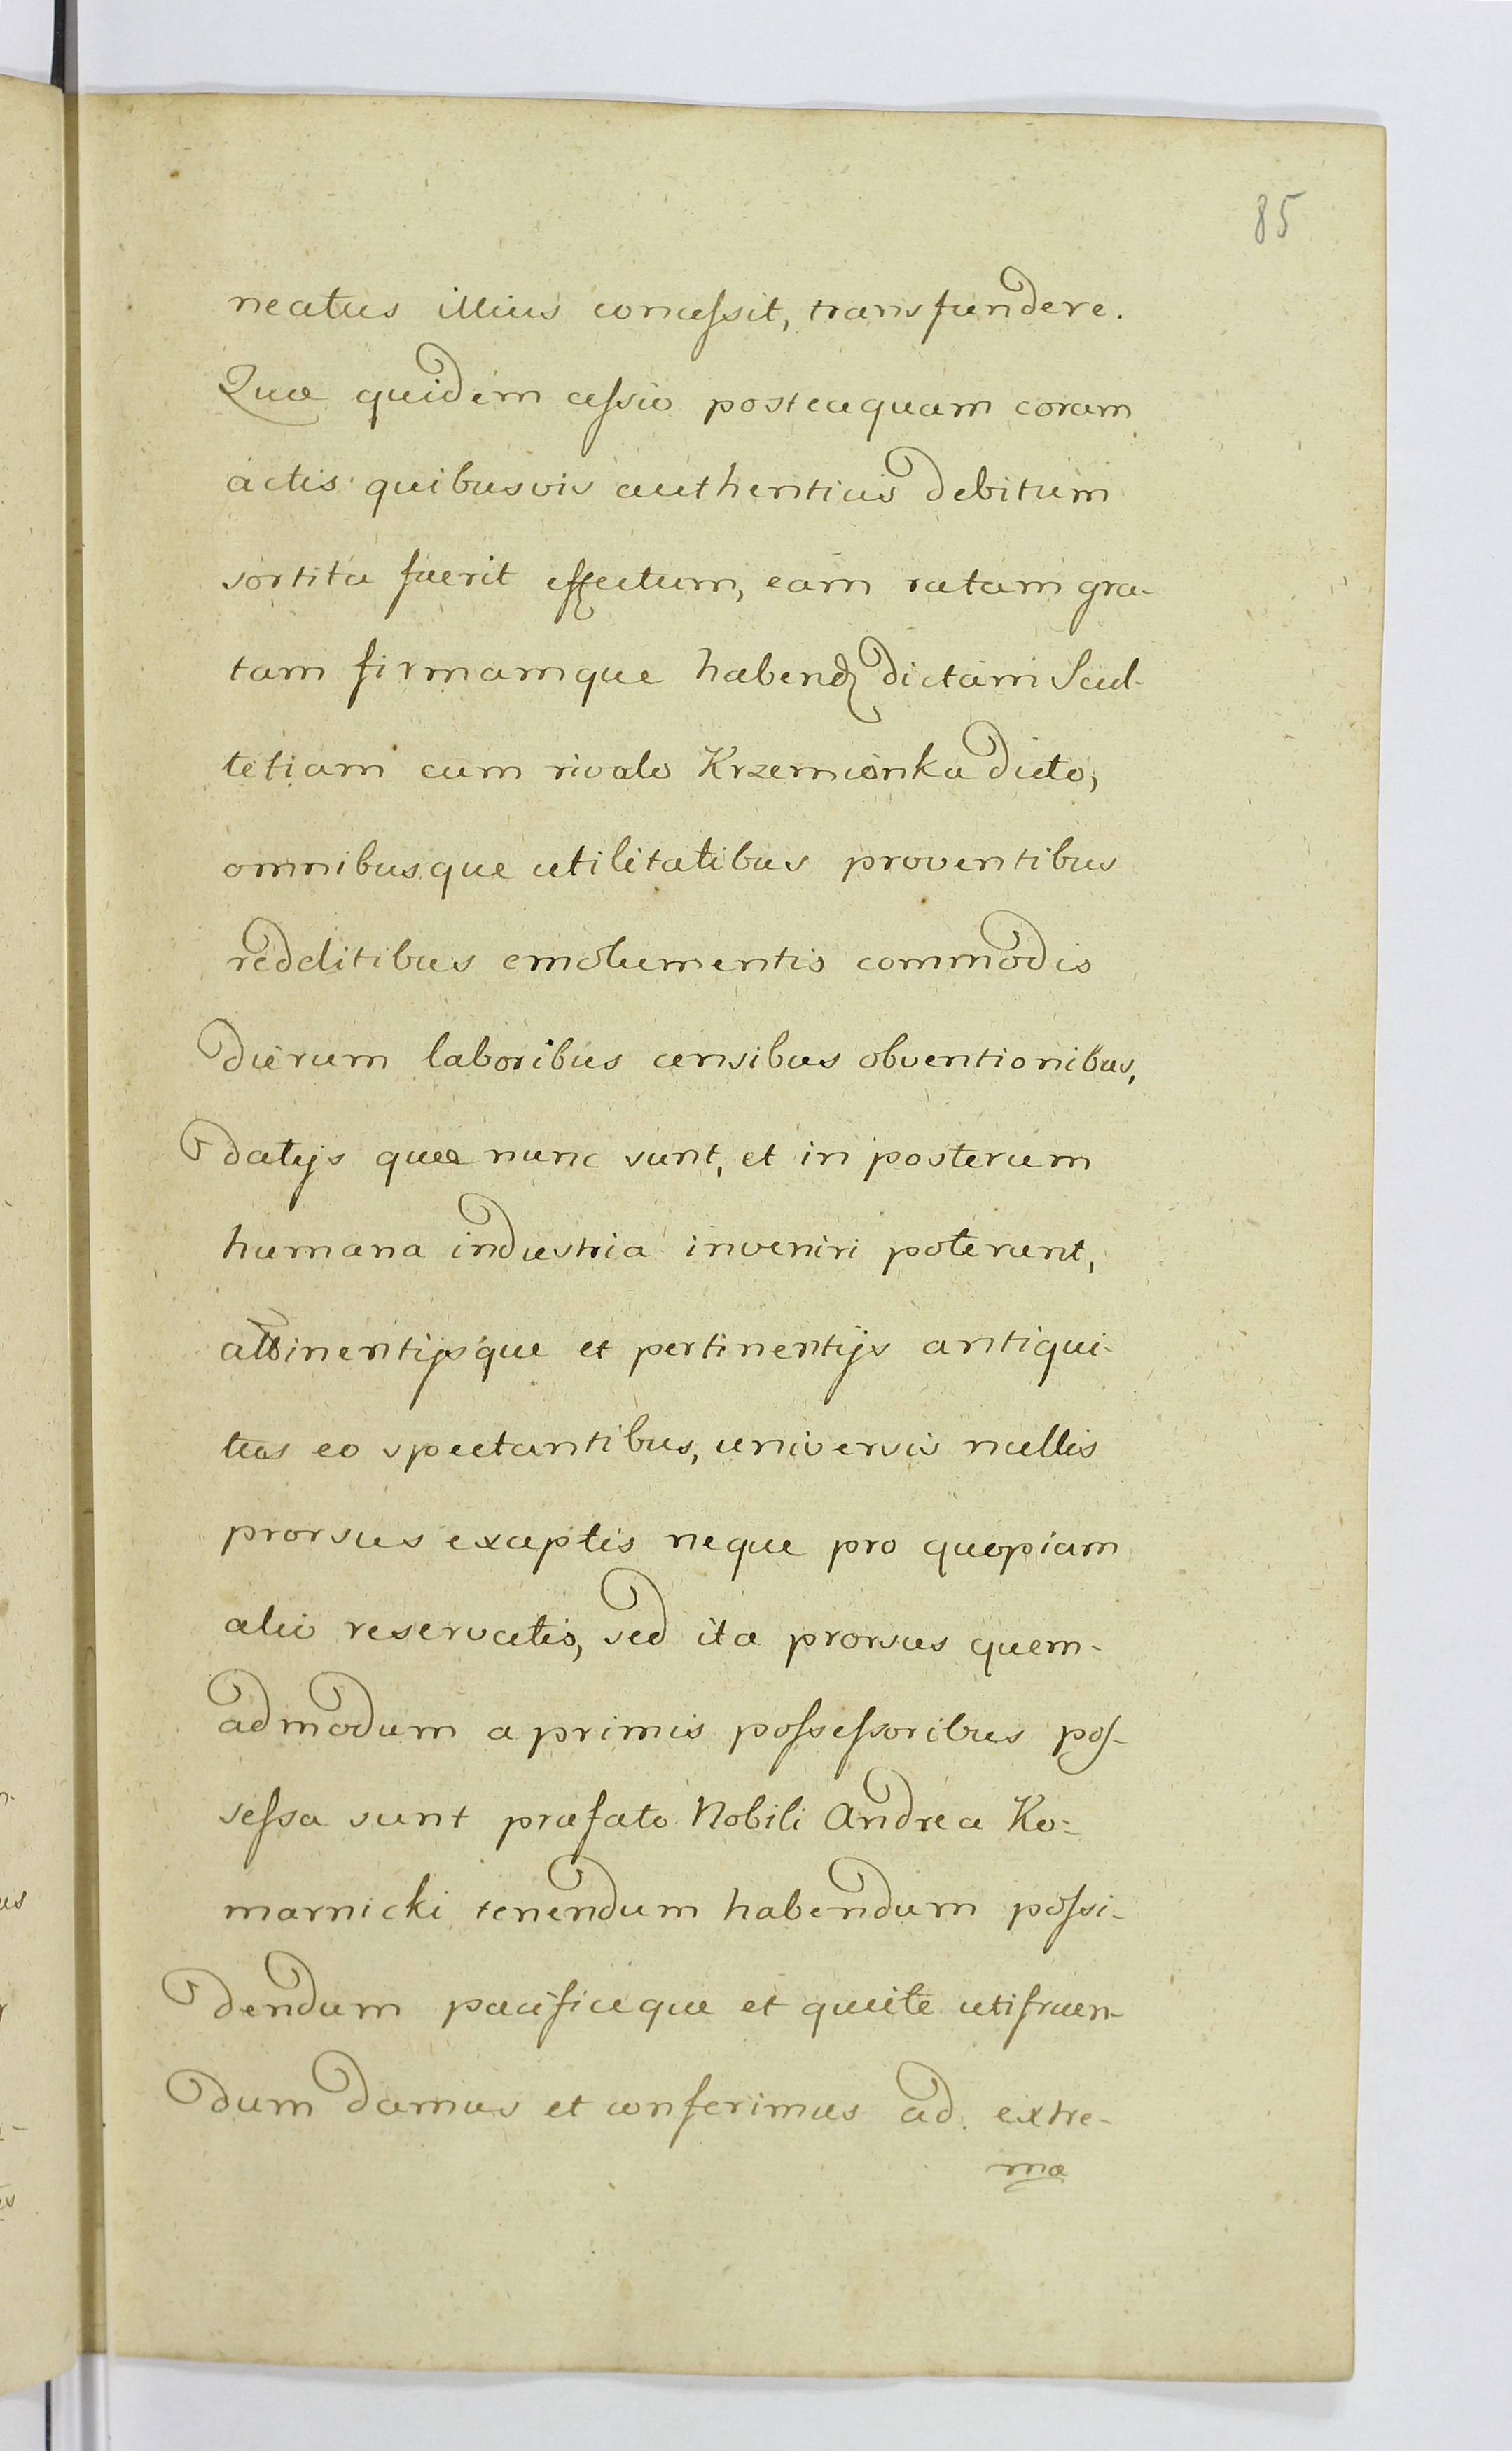 85
neatus illius concessit, transfundere.
Quæ quidem cessio posteaquam coram
actis quibusvis authenticis debitum
sortita fuerit effectum, eam ratam gra-
tam firmamque habend dictam Scul-
tetiam cum rivulo Krzemionka dicto,
omnibusque utilitatibus proventibus
redditibus emolumentis commodis
dierum laboribus censibus obventionibus,
datijs quæ nunc sunt, et in posterum
humana industria inveniri poterunt,
attinentijsque et pertinentijs antiqui-
tus eo spectantibus, universis nullis
prorsus exceptis neque pro quopiam
alio reservatis, sed ita prorsus quem-
admodum a primis possessoribus pos-
sessa sunt præfato Nobili Andrea Ko-
marnicki tenendum habendum possi-
dendum pacificeque et quiete utifruen-
dum damus et conferimus ad extre-
ma